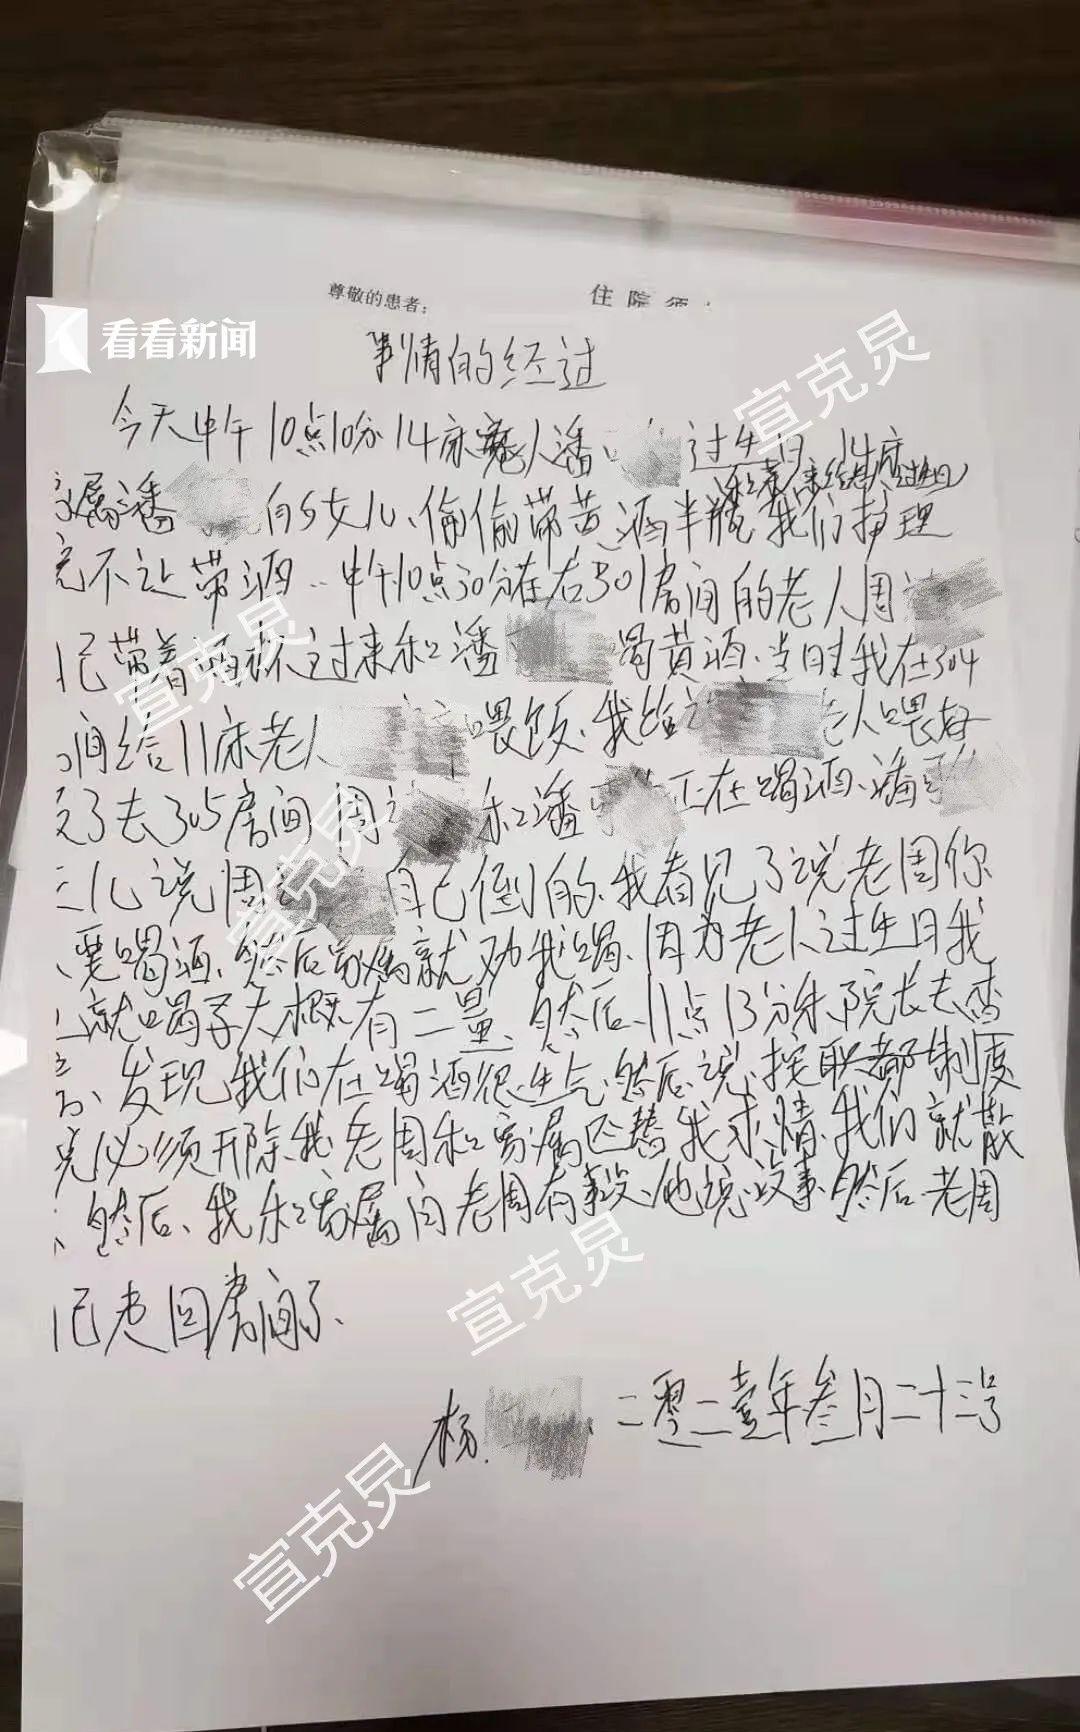 尊敬的患者：
住院须
看看新闻
事情的经过
宣克炅
今天中午10点10分14床老人潘 过生日 14床
家属潘 的女儿、偷偷带黄酒半瓶 我们护理
院不让带酒..中午10点30分在右301房间的老人周
自己带着酒杯过来和潘 喝黄酒、当时我在304
房间给11床老人 喂饭、我给 老人喂好
宣克炅
完了去305房间周 和潘 正在喝酒、潘
女儿说周 自己倒的、我看见了说老周你
宣克炅
不要喝酒、然后家属就劝我喝、因为老人过生日我
就喝了大概有二量、然后、11点13分朱院长去查
发现我们在喝酒很生气、然后说、按职都制度
必须开除我老周和家属还替我求情、我们就散
然后、我和家属问老周有事没、他说没事、然后老周
自己走回房间了、
宣克炅
杨 二零二壹年叁月二十三号
宣克炅